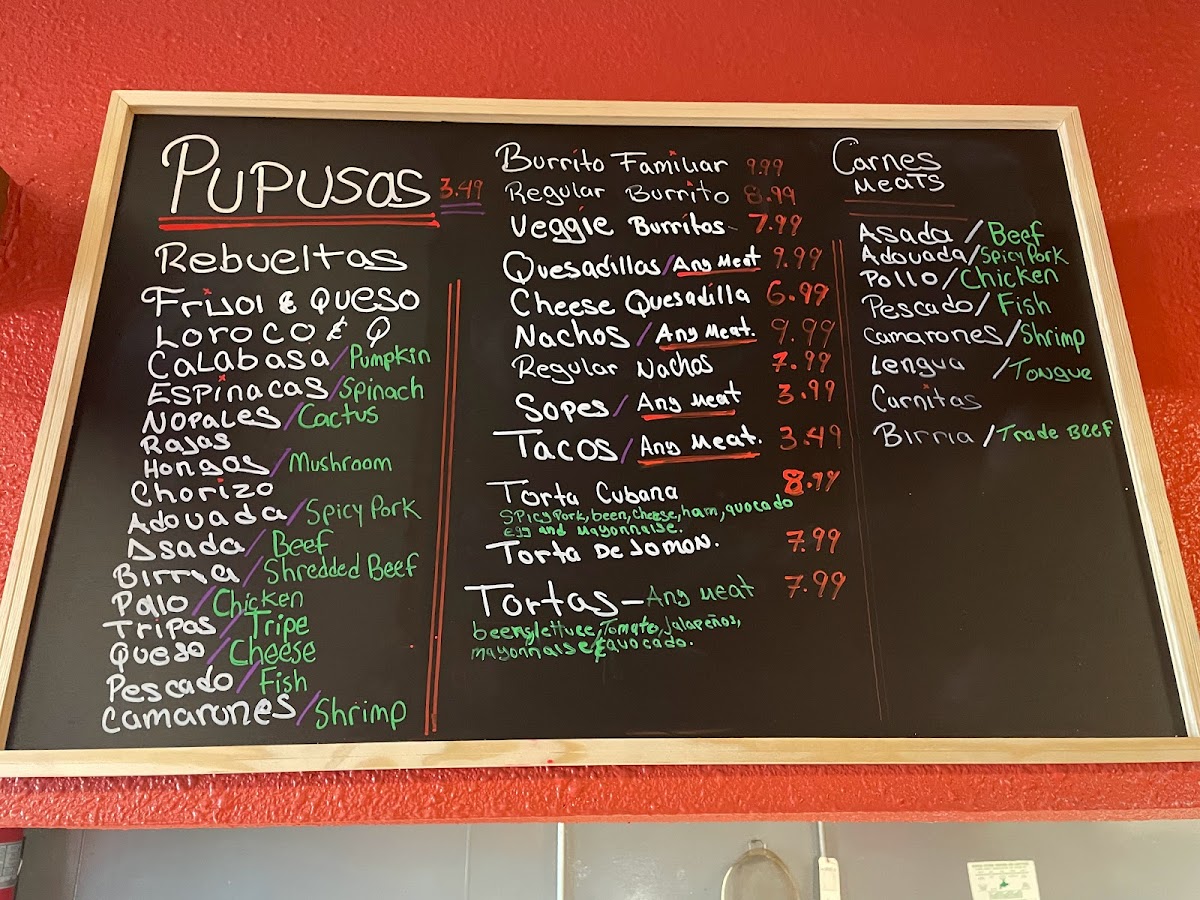 Pupusas 3.49
Rebueltas
Frijol & Queso
Loroco & Q
Calabasa / Pumpkin
Espinacas / Spinach
Nopales / Cactus
Rajas
Hongos / Mushroom
Chorizo
Adovada / Spicy Pork
Asada / Beef
Birria / Shredded Beef
Pollo / Chicken
Tripas / Tripe
Queso / Cheese
Pescado / Fish
Camarones / Shrimp
Burrito Familiar 9.99
Regular Burrito 8.99
Veggie Burritos- 7.99
Quesadillas / Any Meat 9.99
Cheese Quesadilla 6.99
Nachos / Any Meat. 9.99
Regular Nachos 7.99
Sopes / Any Meat 3.99
Tacos / Any Meat. 3.49
Torta Cubana 8.99
Spicy Pork, been, cheese, ham, avocado
Egg and Mayonnaise.
Torta De Jomon. 7.99
Tortas - Any Meat 7.99
beens, lettuce, Tomato, Jalapeños,
mayonnaise & avocado.
Carnes
Meats
Asada / Beef
Adovada / Spicy Pork
Pollo / Chicken
Pescado / Fish
Camarones / Shrimp
Lengua / Tongue
Carnitas
Birria / Trade Beef